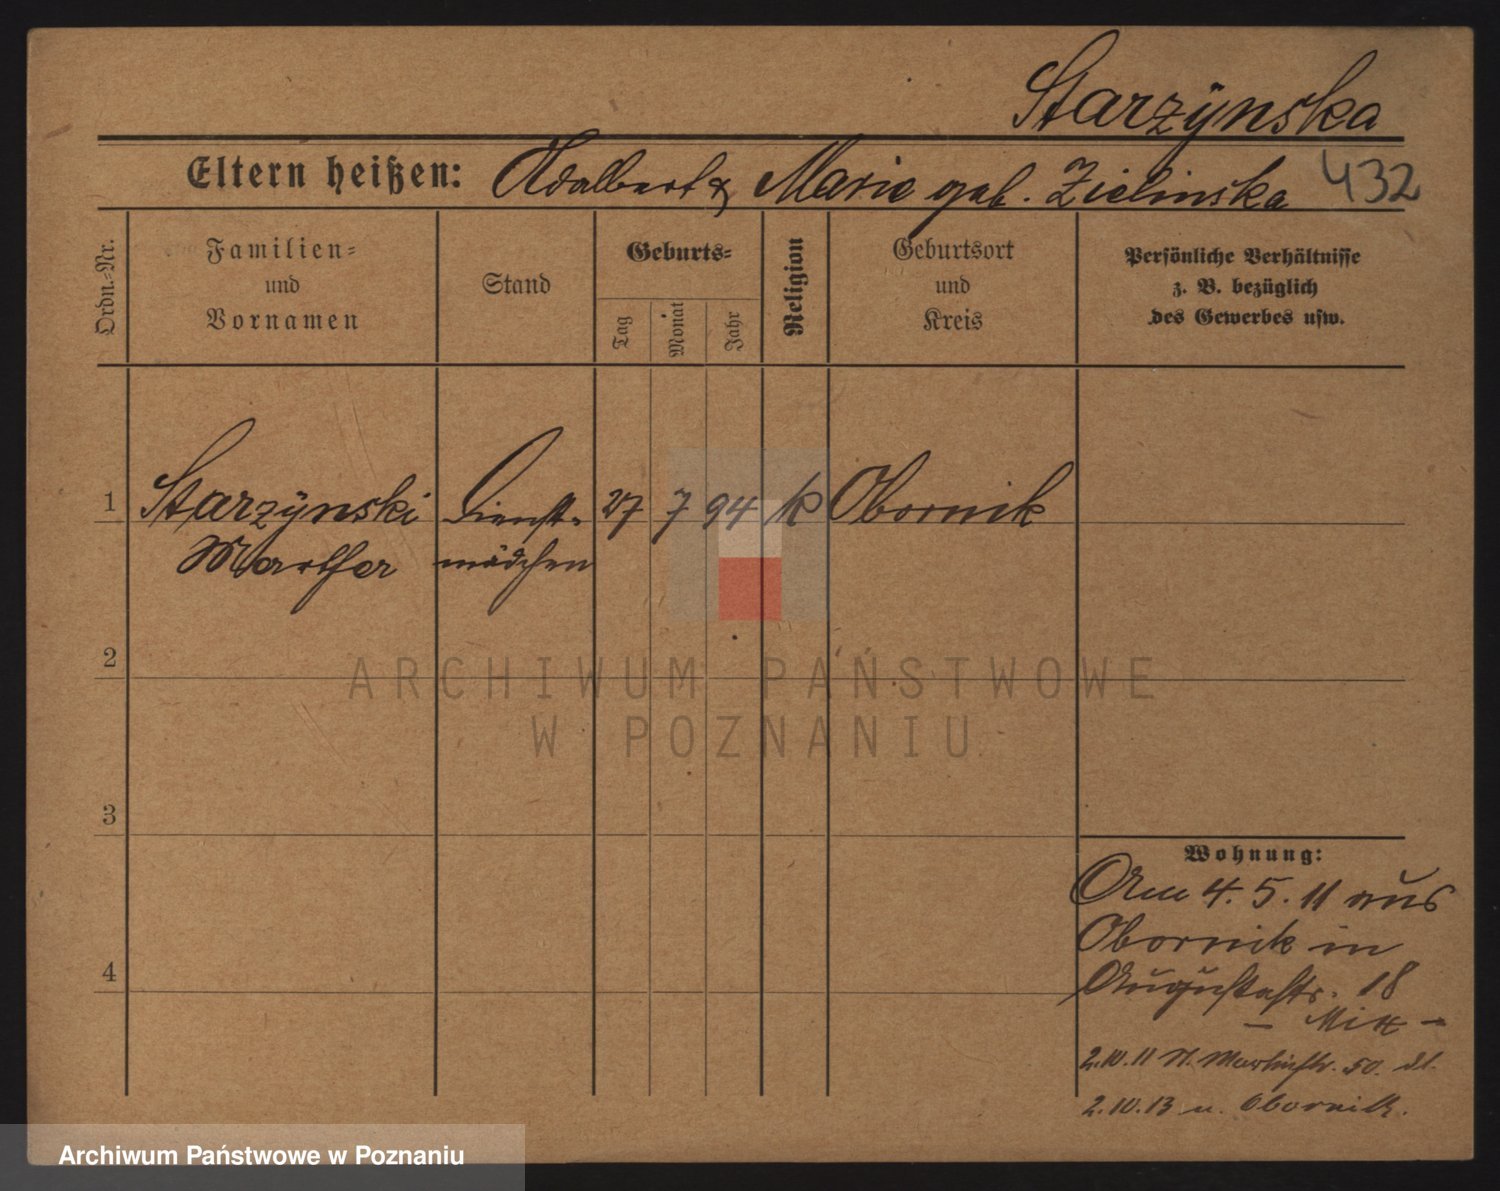 Starzÿnska
Eltern heißen: Adalbert & Marie geb. Zielinska 432
Ordn.-Nr.
Familien-
und
Vornamen
Stand
Geburts-
Tag
Monat
Jahr
Religion
Geburtsort
und
Kreis
Persönliche Verhältnisse
z. B. bezüglich
des Gewerbes usw.
1 Starzÿnski Dienst- 27 7 94 k Obornik
mädchen
2
ARCHIWUM PAŃSTWOWE
W POZNANIU
3
Wohnung:
Am 4. 5. 11 aus
Obornik in
4 Augustastr. 18
2.10.11 St. Martinstr. 50.
2.10.13 n. Obornik.
Archiwum Państwowe w Poznaniu